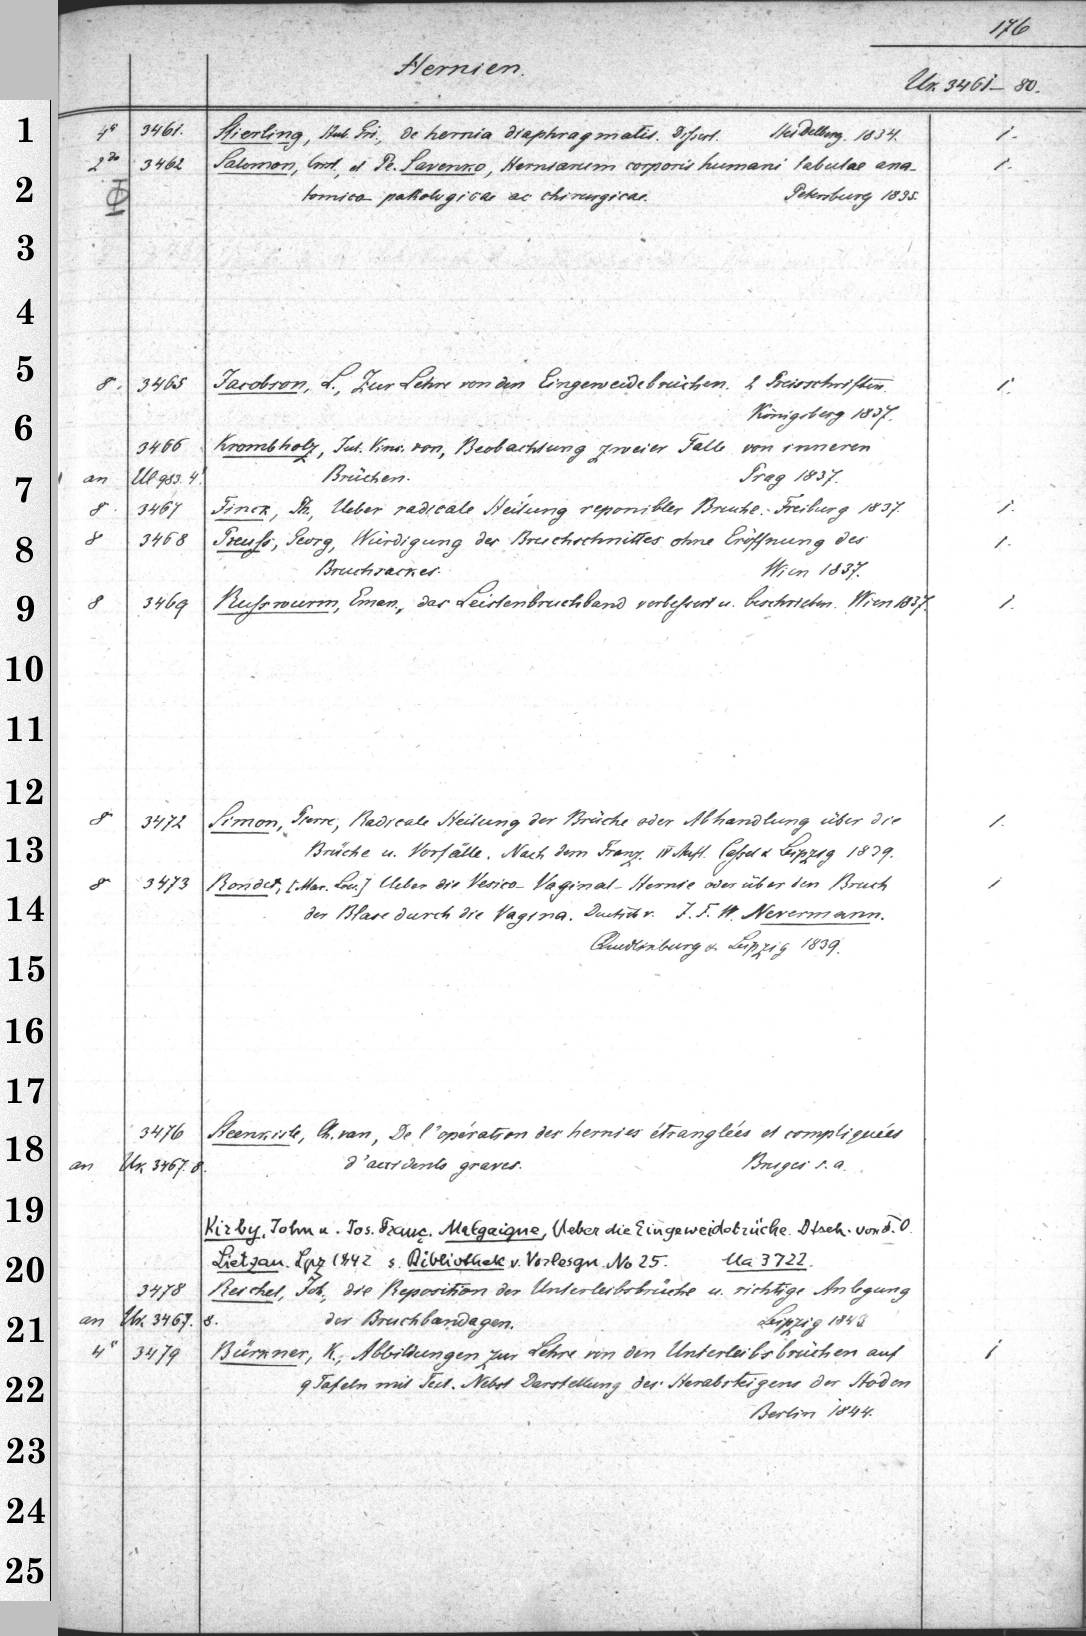 176
Hernien.
Uk. 3461-80.
1
4° 3461. Stierling, de hernia diaphragmatis. Dissert. Heidelberg. 1834. 1.
2do 3462 Salomon, et Pe. Savenko, Herniarum corporis humani tabulae ana-
2
tomico pathologicae ac chirurgicae. Petersburg 1835.
3
4
5
8. 3465 Jacobson, L., Zur Lehre von den Eingeweidebrüchen. 2 Preisschriften. 1.
6
Königsberg 1837.
3466 Krombholz, Jul. Vinc. von, Beobachtung zweier Fälle von inneren
7
an Ul 983. 4° Brüchen. Prag 1837.
8. 3467 Finck, Th., Ueber radicale Heilung reponibler Brüche. Freiburg 1837. 1.
8
8 3468 Preuss, Georg, Würdigung des Bruchschnittes ohne Eröffnung des 1.
Bruchsackes. Wien 1837.
9
8 3469 Russwurm, Eman., das Leistenbruchband verbessert u. beschrieben. Wien 1837. 1.
10
11
12
8 3472 Simon, Pierre, Radicale Heilung der Brüche oder Abhandlung über die 1.
13
Brüche u. Vorfälle. Nach dem Franz. IV Aufl. Cassel & Leipzig 1839.
8 3473 Rondet, [Mar. Lou.] Ueber die Vesico-Vaginal-Hernie oder über den Bruch 1
14
der Blase durch die Vagina. Deutsch v. J. F. W. Nevermann.
Quedlinburg & Leipzig 1839.
15
16
17
3476 Steenkiste, Ch. van, De l'opération des hernies étranglées et compliquées
18
an Uk 3467. 8. d'accidents graves. Bruges s. a.
19
Kirby, John u. Jos. Franç. Malgaigne, Ueber die Eingeweidebrüche. Dtsch. von F. O.
20
Lietzau. Lpz 1842 s. Bibliothek v. Vorlesgn. No 25. Ua 3722.
3478 Reichel, Joh., die Reposition der Unterleibsbrüche u. richtige Anlegung
21
an Uk. 3467. 8. der Bruchbandagen. Leipzig 1843
4° 3479 Bürkner, K., Abbildungen zur Lehre von den Unterleibsbrüchen auf 1
22
9 Tafeln mit Text. Nebst Darstellung des Herabsteigens der Hoden
Berlin 1844.
23
24
25